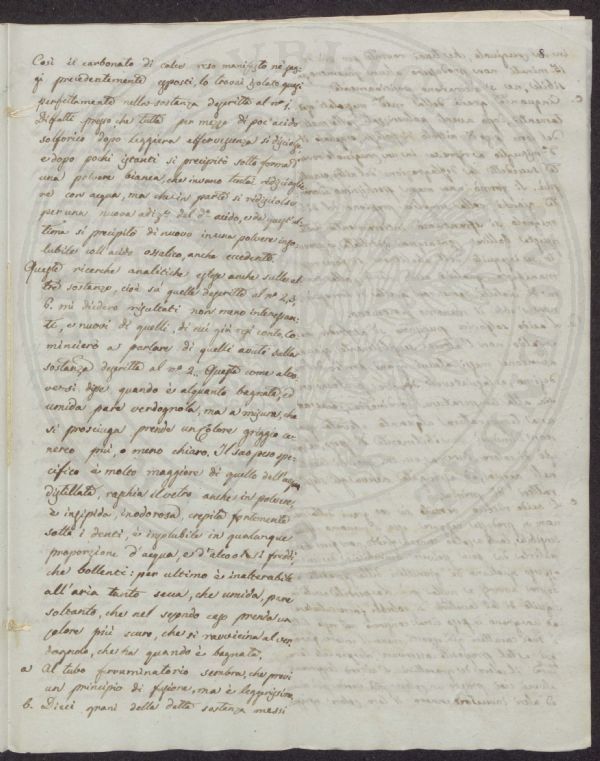 8
Così il carbonato di calce reso manifesto nè sag-
gi precedentemente esposti, lo trovai isolato quasi
perfettamente nella sostanza descritta al nº 1.
Diffatti presso, che tutta per mezzo di poc'acido
solforico dopo leggiera effervescenza si disciolse,
e dopo pochi istanti si precipitò sotto forma di
una polvere bianca, che invano tentai redisciogliere
con acqua, ma che in parte si redisciolse
per una nuova adizne. del do. acido, e da quest'
si precipitò di nuovo in una polvere inso-
lubile coll'acido ossalico, anche eccedente.
Queste ricerche analitiche estese anche sulle al-
tre sostanze, cioè su quelle descritte al nº 2, 3,
6. mi diedero risultati non meno interessan-
ti, e nuovi di quelli, di cui già resi conto. Co-
mincierò a parlare di quelli avuti sulla
sostanza descritta al nº 2. Questa come altro-
ve si disse quando è alquanto bagnata, ed
umida pare verdognola, ma a misura, che
si prosciuga prende un colore griggio ce-
nereo più, o meno chiaro. Il suo peso spe-
cifico è molto maggiore di quello dell'acqua
distillata, raphia il vetro anche in polvere,
è insipida, inodorosa, crepita fortemente
sotto i denti, è insolubile in qualunque
proporzione d'acqua, e d'alcool sì freddi,
che bollenti: per ultimo è inalterabile
all'aria tanto secca, che umida, pare
soltanto, che nel secondo caso prenda un
colore più scuro, che si ravvicina al ver-
dognolo, che ha quando è bagnata.
a Al tubo ferruminatorio sembra, che provi
un principio di fusione, ma è leggerissimo.
b. Dieci grani della detta sostanza messi